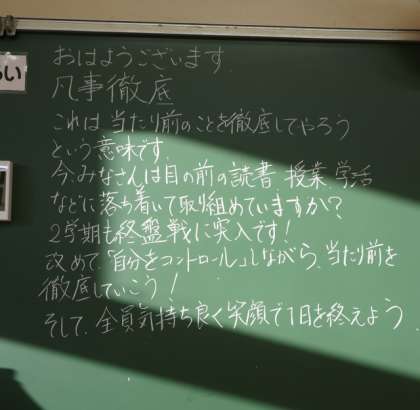 おはようございます
凡事徹底
これは当たり前のことを徹底してやろう
という意味です。
今、みなさんは目の前の読書、授業、学活
などに落ち着いて取り組めていますか？
2学期も終盤戦に突入です！
改めて「自分をコントロール」しながら、当たり前を
徹底していこう！
そして、全員気持ち良く笑顔で1日を終えよう